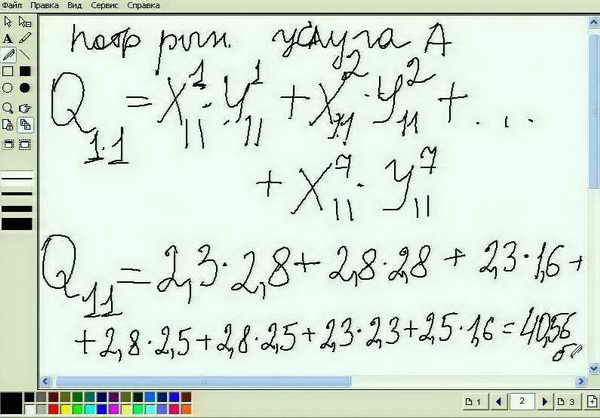 Файл Правка Вид Сервис Справка
потр рын. услуга А
Q₁.₁ = X¹₁₁·Y¹₁₁ + X²₁₁·Y²₁₁ + ...
+ X⁷₁₁·Y⁷₁₁
Q₁₁ = 2,3·2,8 + 2,8·2,8 + 2,3·1,6 +
+ 2,8·2,5 + 2,8·2,5 + 2,3·2,3 + 2,5·1,6 = 40,56
1 2 3